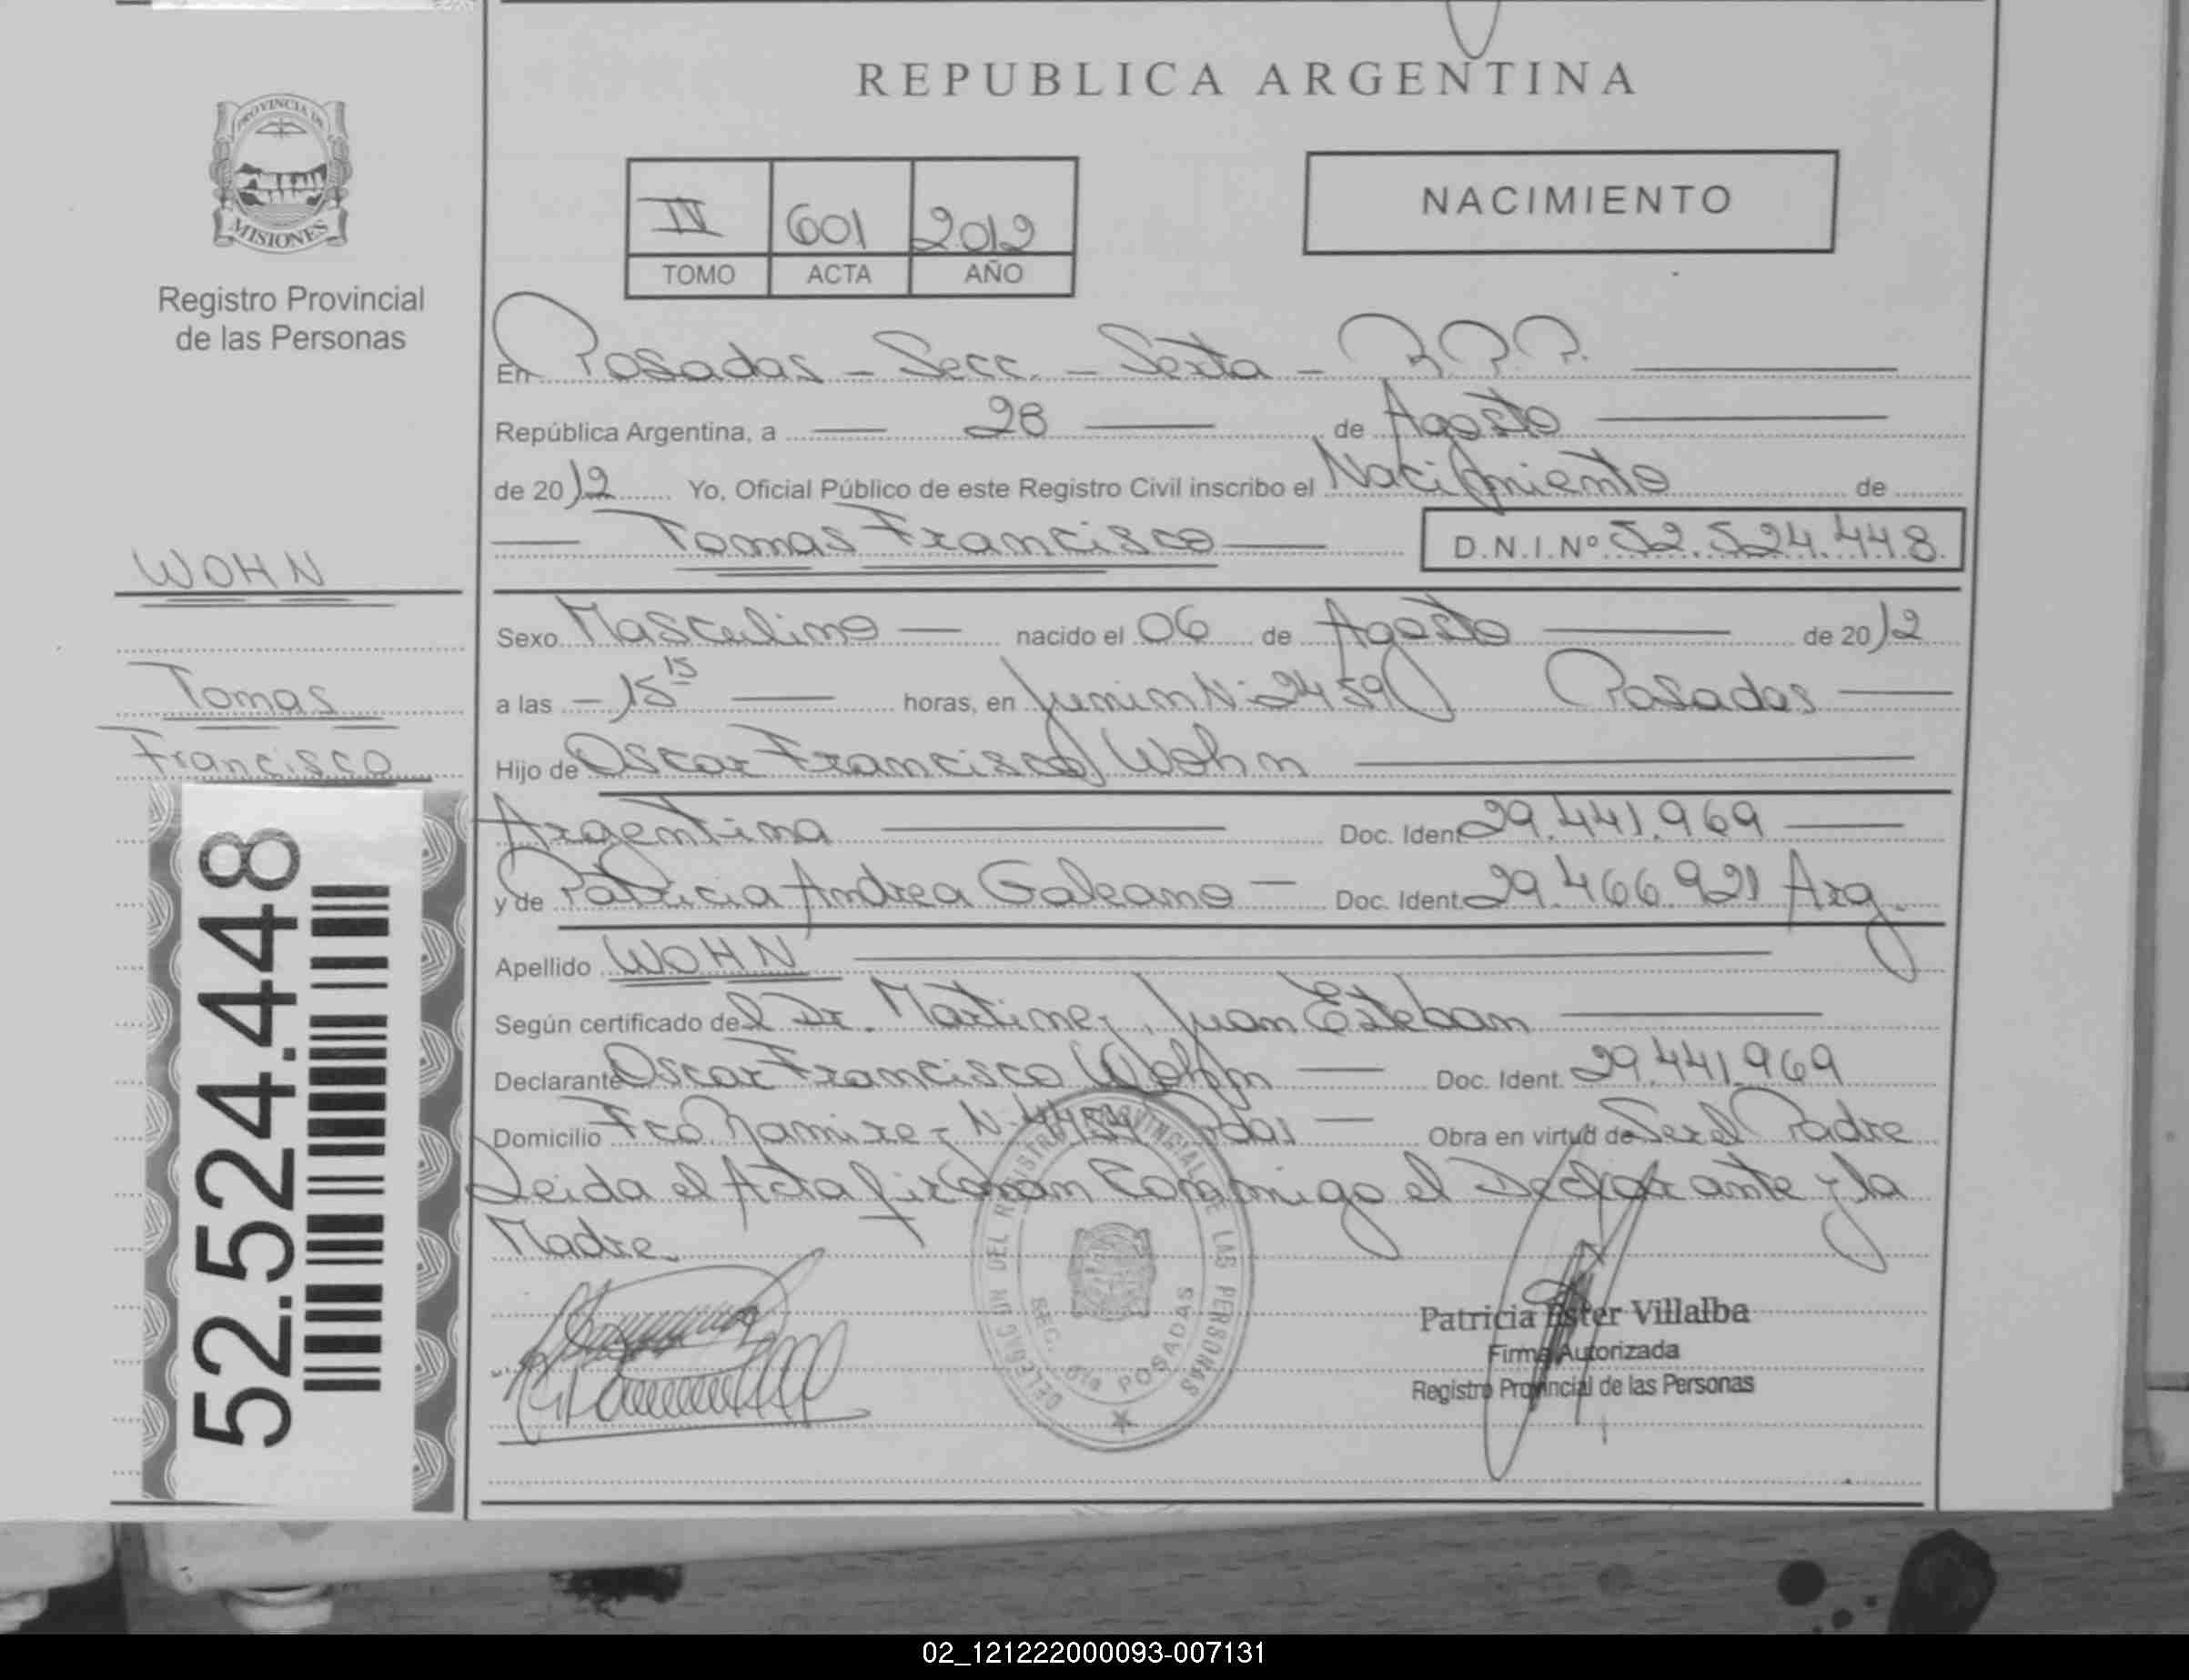 REPUBLICA ARGENTINA
PROVINCIA DE
MISIONES
Registro Provincial
de las Personas
IV 601 2012
TOMO ACTA AÑO
NACIMIENTO
En Posadas - Secc. - Sexta - R.P.P.
República Argentina, a 28 de Agosto
de 2012 Yo, Oficial Público de este Registro Civil inscribo el Nacimiento de
Tomas Francisco D.N.I.Nº 52.524.448
WOHN
Tomas
Francisco
52.524.448
Sexo Masculino nacido el 06 de Agosto de 2012
a las - 15 15 horas, en Junin N: 2459 Posadas
Hijo de Oscar Francisco Wohn
Argentina Doc. Ident 29.441.969
y de Patricia Andrea Galeano Doc. Ident. 29.466.921 Arg.
Apellido WOHN
Según certificado del Dr. Martinez, Juan Esteban
Declarante Oscar Francisco Wohn Doc. Ident. 29.441.969
Domicilio Fco. Ramirez N: 4454 Pdas Obra en virtud de Ser el Padre
Leida el Acta firman Conmigo el Declarante y la
Madre.
DELEGACION DEL REGISTRO PROVINCIAL DE LAS PERSONAS
SEC. 6ta POSADAS
Patricia Ester Villalba
Firma Autorizada
Registro Provincial de las Personas
02_121222000093-007131